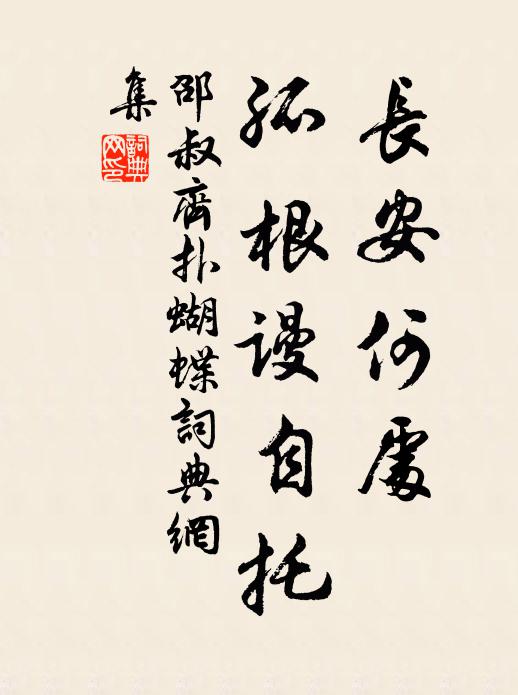 長安何處
孤根謾自托
邵叔齊扑蝴蝶詞典網
集
詞典網印